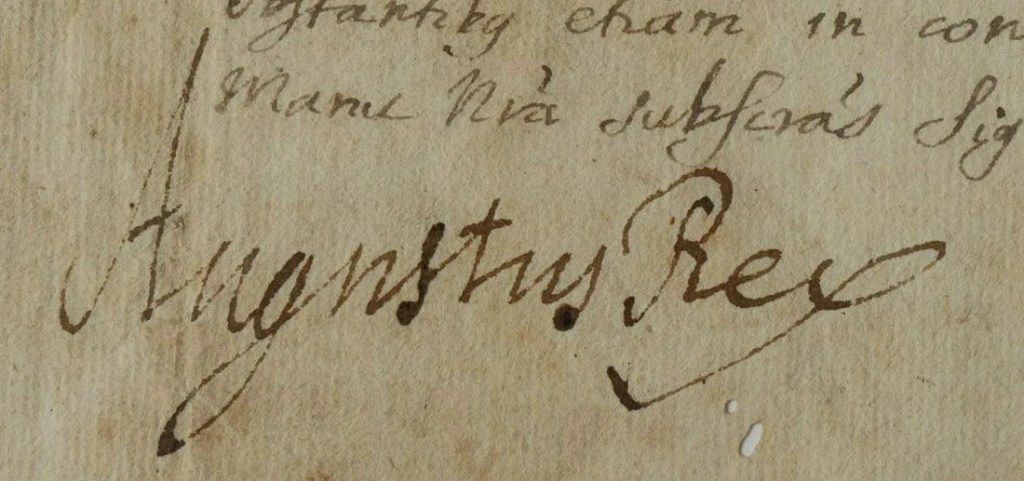 obstantibg etiam in con
Manu Nrà subscrás Sig
Augustus Rex